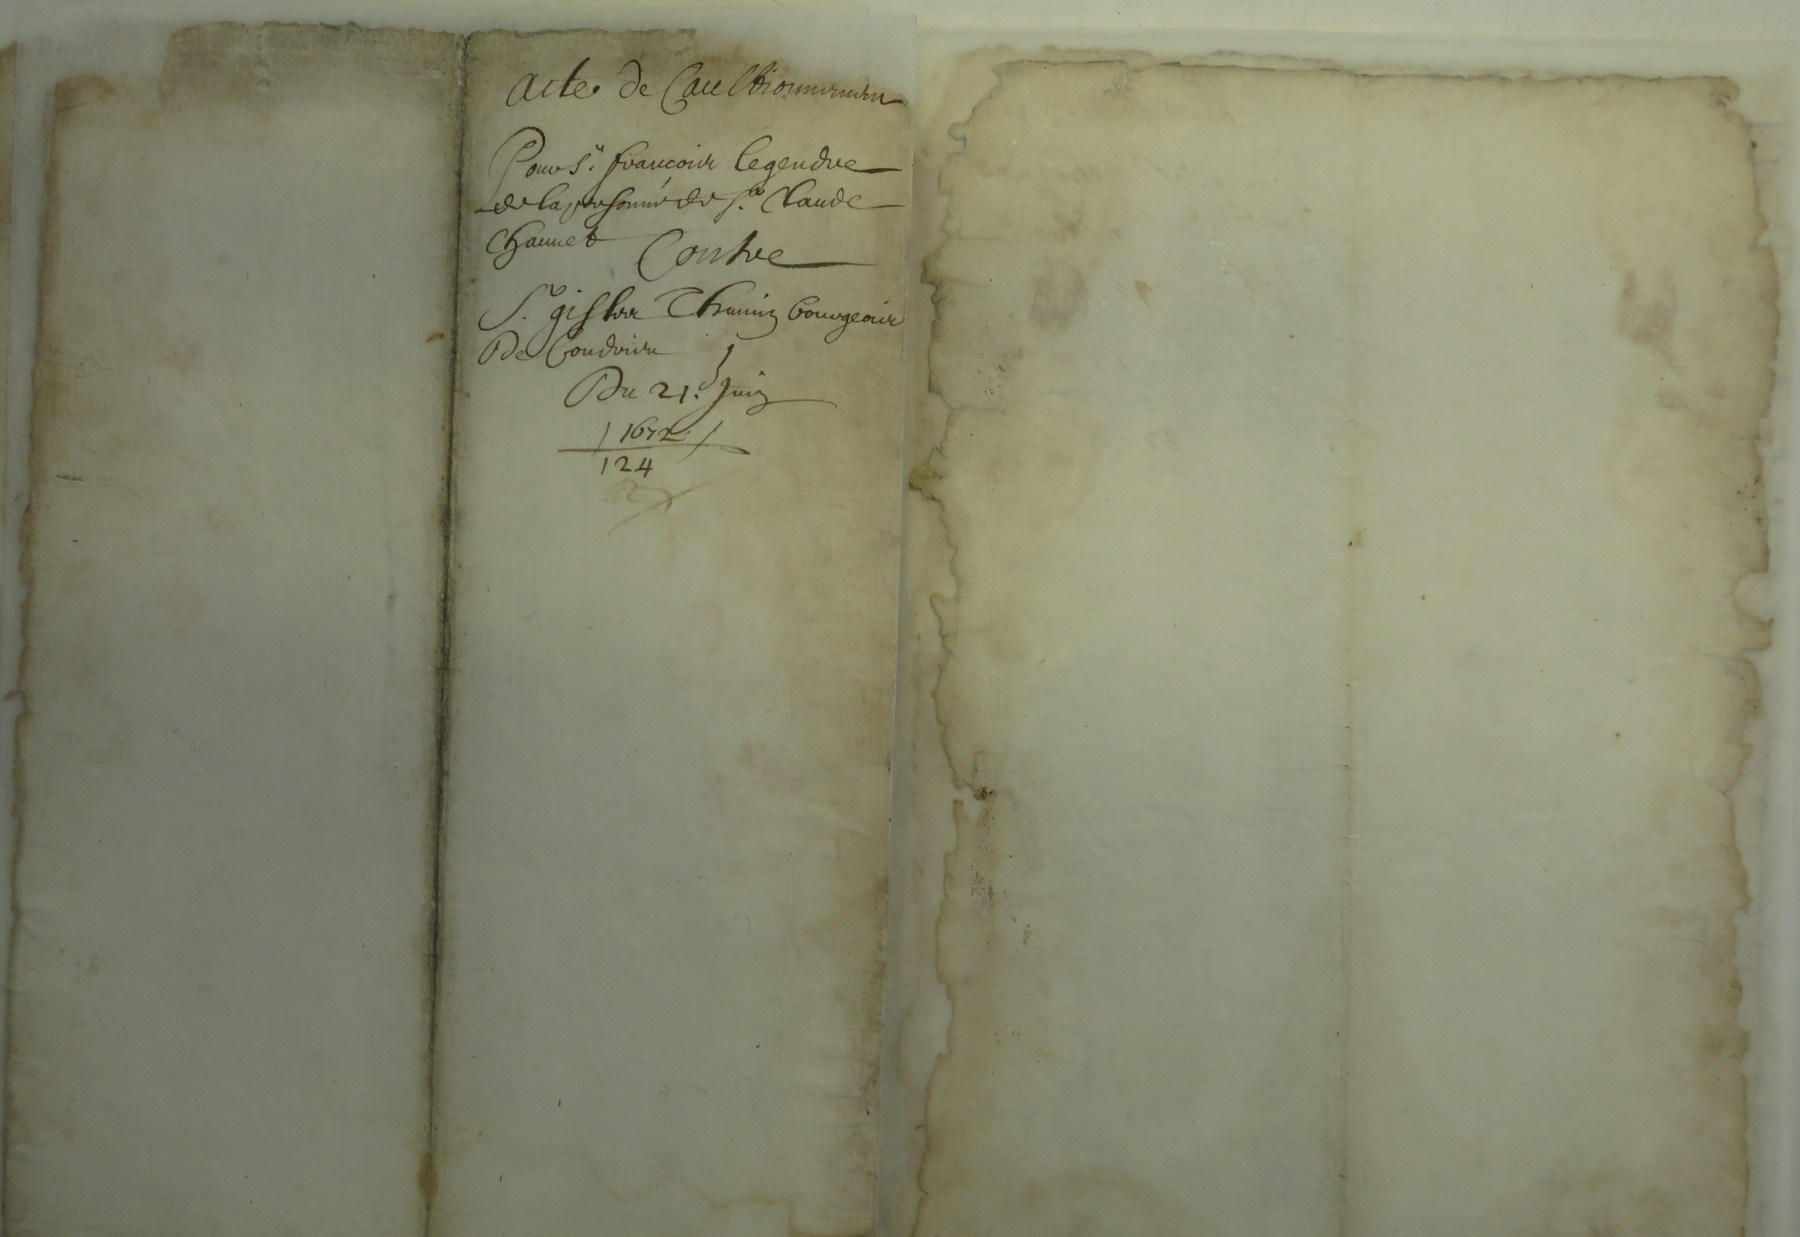 Acte de Caultionnemen
Pour Sr. francois legendre
de la personne de Sr. Claude
Chauuet Contre
Sr. Thuning bourgeois
De Condrieu
Du 21. Juing
1672
124